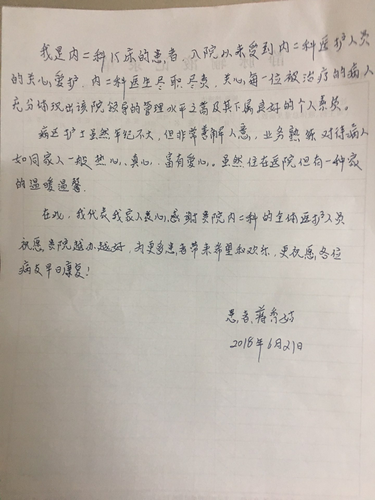 我是内二科15床的患者，入院以来受到内二科医护人员
的关心爱护，内二科医生尽职尽责，关心每一位被治疗的病人
充分体现出该院领导的管理水平之高及其下属良好的个人素质。
病区护士虽然年纪不大，但非常善解人意，业务熟练对待病人
如同家人一般热心、真心、富有爱心。虽然住在医院但有一种家
的温暖温馨。
在此，我代表我家人衷心感谢贵院内二科的全体医护人员
祝愿贵院越办越好，为更多患者带来希望和欢乐，更祝愿各位
病友早日康复！
患者：蒋
2018年6月21日